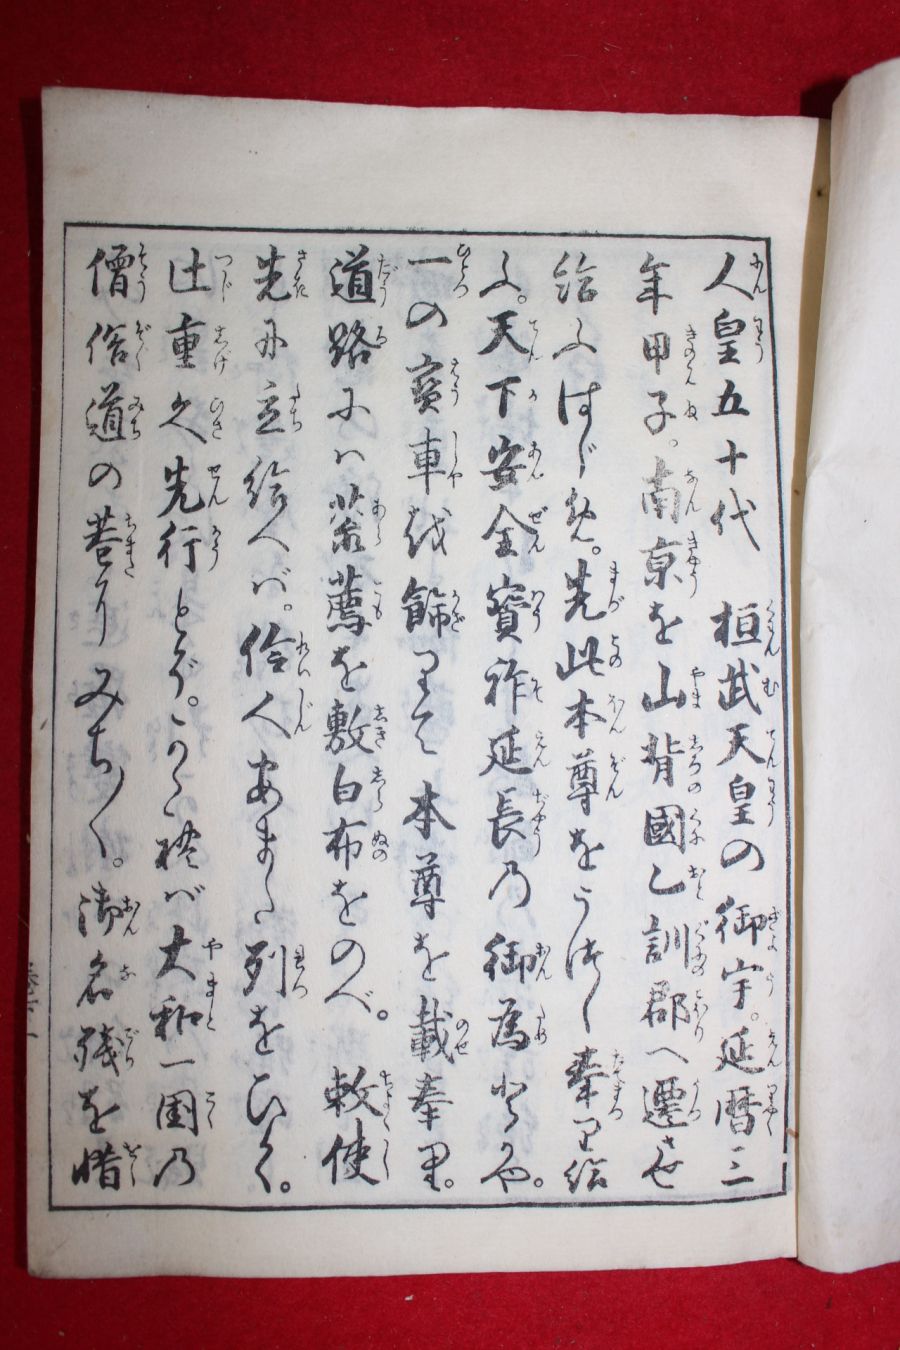 人皇五十代　桓武天皇の御宇。延暦三
年甲子。南京を山背國乙訓郡へ遷させ
給ふはじめ。先此本尊をうつし奉り給
ふ。天下安全寳祚延長乃御為とかや。
一の寳車を餝りて本尊を載奉り。
道路には荒薦を敷白布をのべ。勅使
先に立給へば。伶人あまた列をひく。
辻重久先行とぞ。かゝれば大和一国乃
僧俗道の巷にみち〳〵。御名残を惜